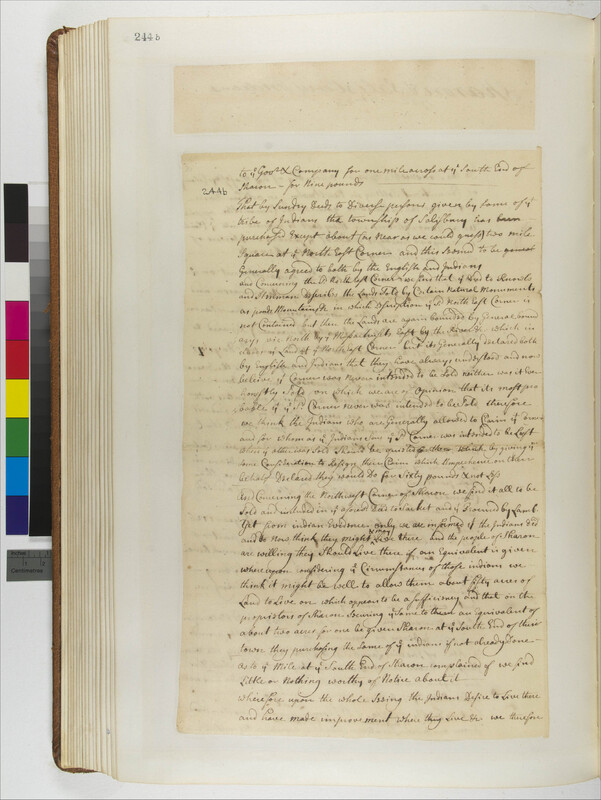 244b
244b
to yᵉ Govʳ & Company for one mile across at yᵉ South End of
Sharon - for Nine pounds
That by Sundry Deeds to Diverse persons given by some of yᵉ
tribe of Indians the township of Salsbury has been
purchased Except about (as Near as we could guess) two mile
Square at yᵉ North East Corner and this Seems to be
Generally agreed to both by the English and Indians
and Concerning the sᵈ North East Corner we find that yᵉ Deed to Knowls
and Stedman Describes the Lands Sold by Certain Natural Monuments
as ponds Mountains &c in which Description yᵉ sᵈ North East Corner is
not Contained but then the Lands are again bounded by General bound
arys viz North by yᵉ Massachusets East by the River &c which in
cludes yᵉ Land at yᵉ North East Corner but its Generally declared both
by English and Indians that they have always understood and now
believe yᵉ Corner was Never intended to be Sold neither was it Ever
honestly Sold on which we are of Opinion that its most pro
bable yᵗ yᵉ sᵈ Corner never was intended to be Sold therefore
we think the Indians who are Generally allowed to Claim yᵉ same
and for whom as yᵉ Indians Say yᵉ sᵈ Corner was intended to be Left
when yᵉ other was Sold Should be quieted by giving yᵐ
Some Consideration to Resign their Claim which
behalf Declared they would Do for Sixty pounds & not Less
And Concerning the Northwest Corner of Sharon we find it all to be
Sold and included in yᵉ aforesᵈ Deed to and yᵉ Second by Lamb
Yet from indian Evidence only we are informed yᵗ the Indians Did
and do Now think they might Live there and the people of Sharon
are willing they Should Live there if an Equivalent is given
whereupon considering yᵉ Circumstances of those indians we
think it might be well to allow them about fifty acres of
Land to Live on which appears to be a Sufficiency and that on the
proprietors of Sharon Securing yᵉ Same to them an Equivalent of
about two acres for one be given Sharon at yᵉ South End of their
town they purchasing the Same of yᵉ indians if not already Done
as to yᵉ Mile at yᵉ South End of Sharon complained of we find
Little or Nothing worthy of Notice about it
Wherefore upon the whole Seeing the Indians Desire to Live there
and have made improvement where they Live &c we therefore